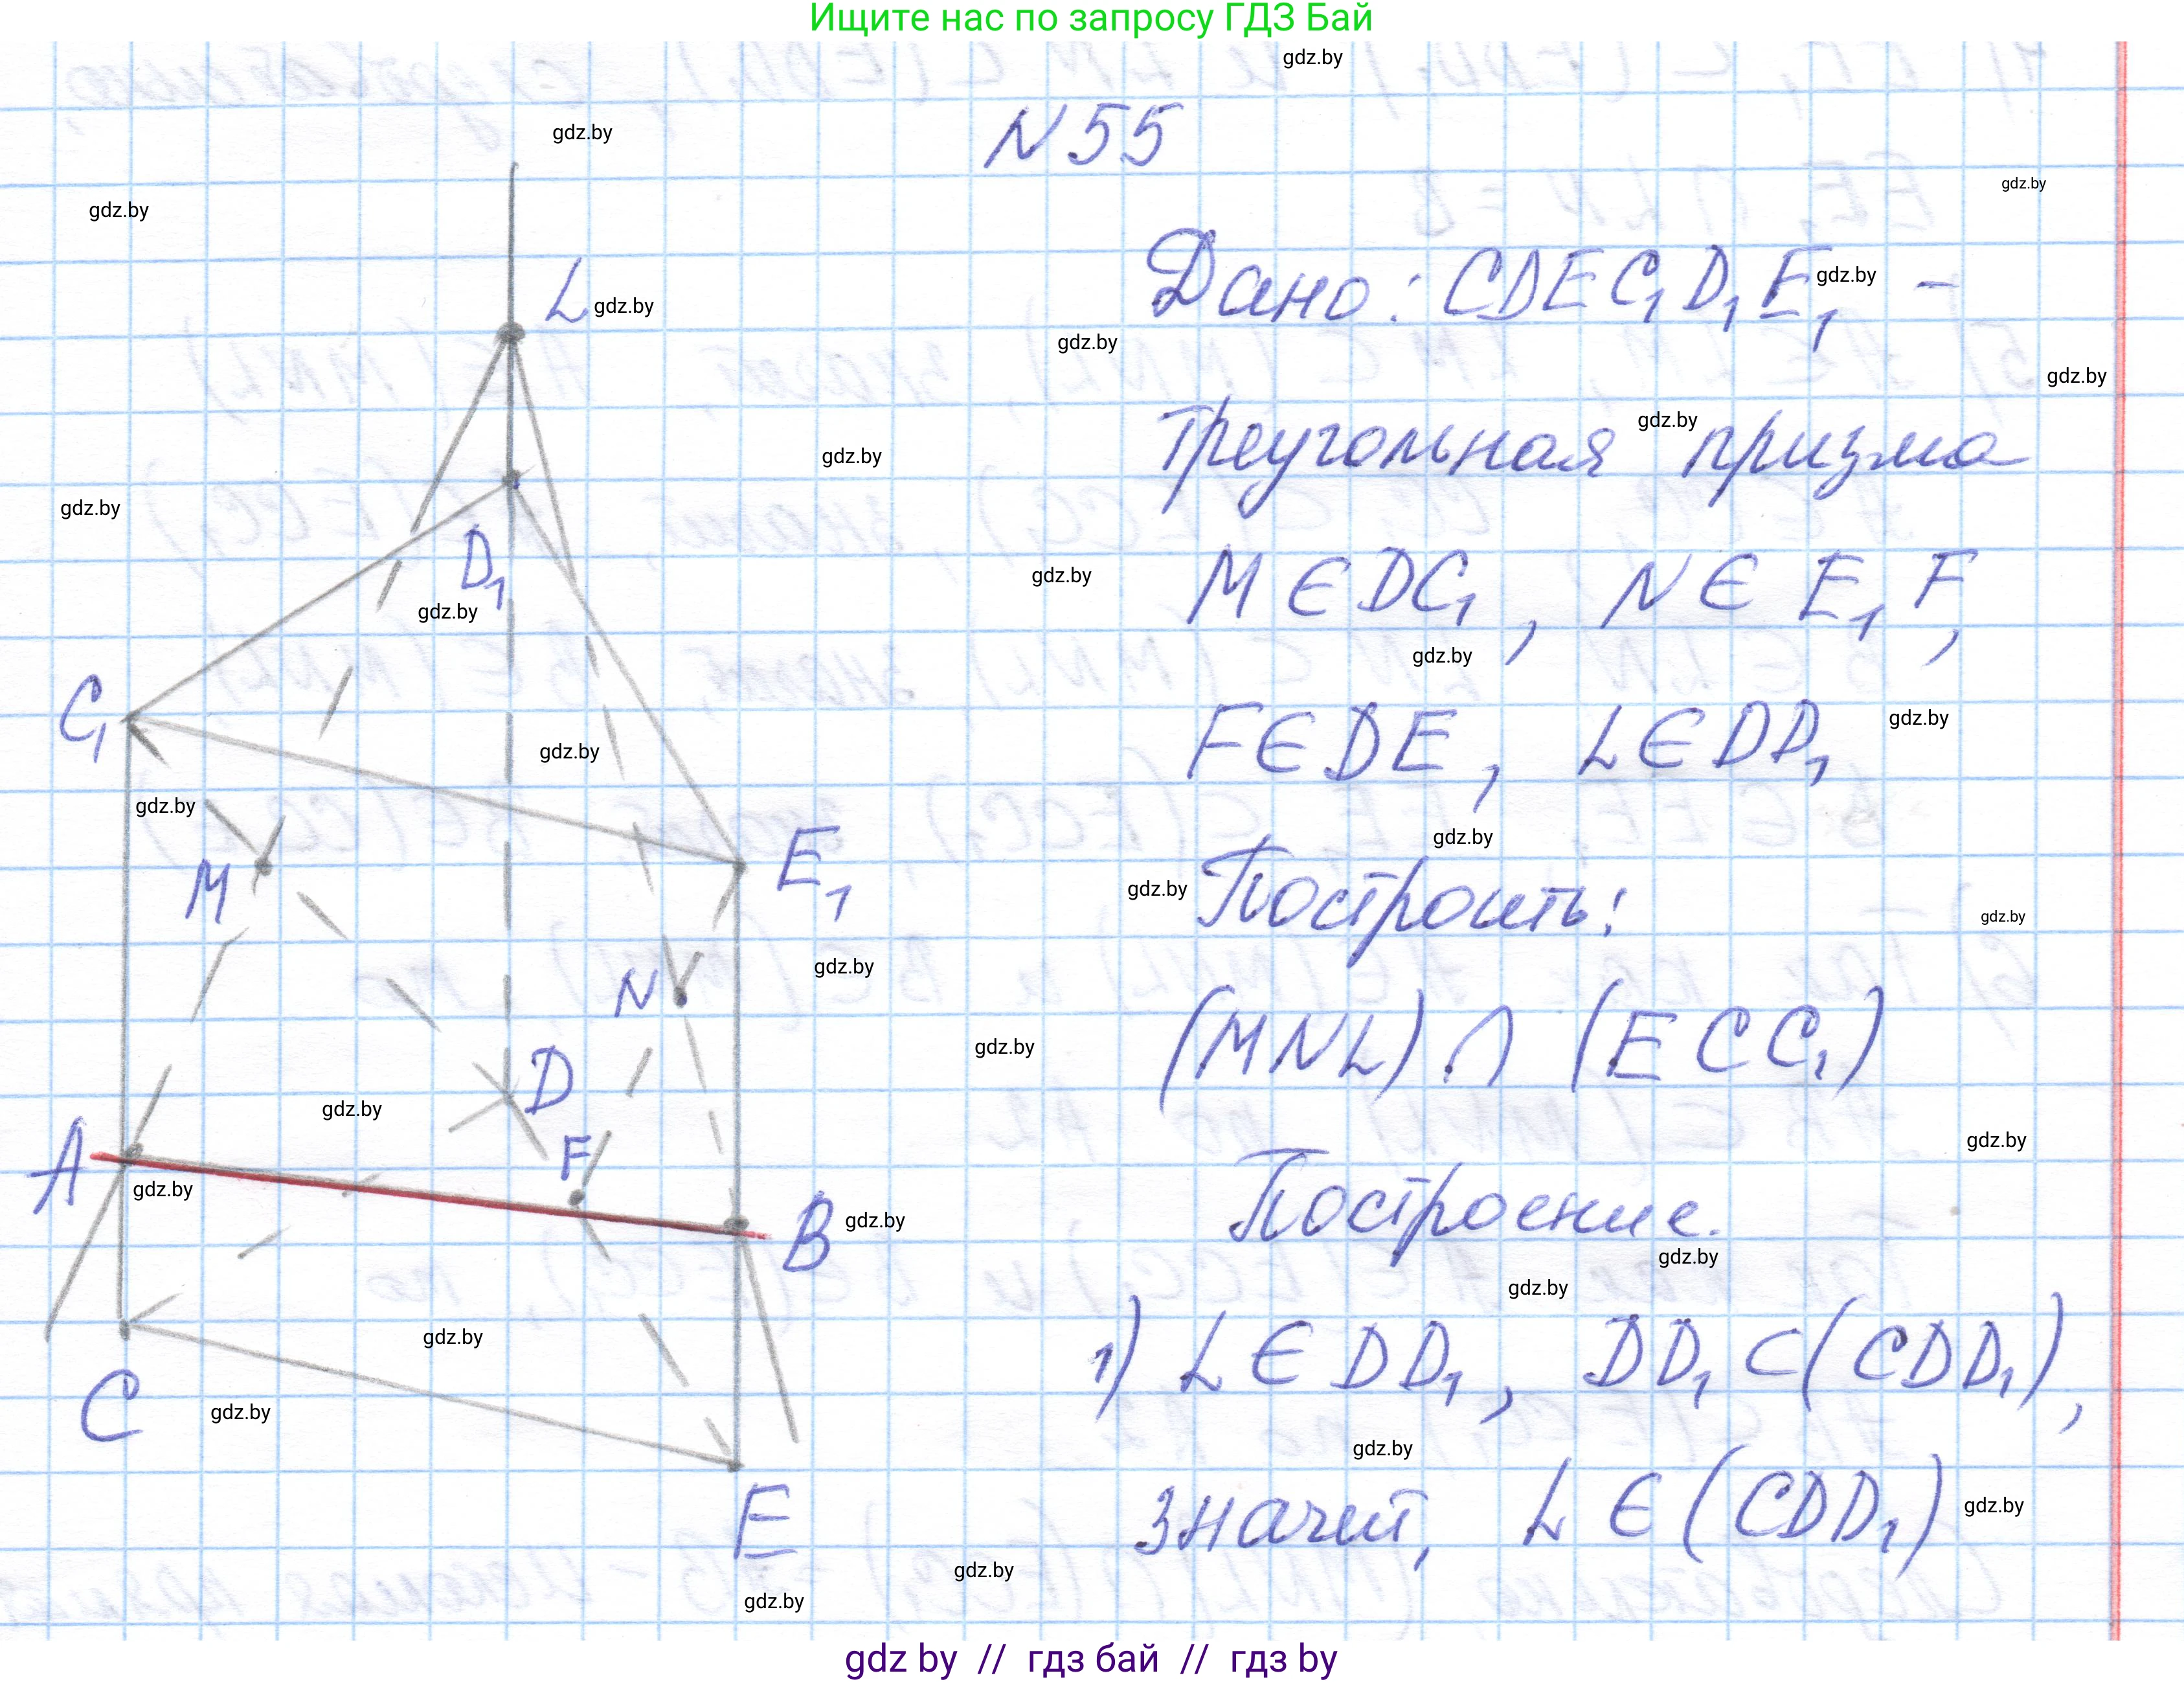 Ищите нас по запросу ГДЗ Бай
N 55
Дано: CDEC₁D₁E₁ –
треугольная призма
M ∈ DC₁, N ∈ E₁F,
F ∈ DE, L ∈ DD₁
Построить:
(MNL) ∩ (ECC₁)
Построение.
1) L ∈ DD₁, DD₁ ⊂ (CDD₁),
значит, L ∈ (CDD₁)
L
D₁
C₁
M
E₁
N
D
F
A
B
C
E
gdz.by
gdz by // гдз бай // гдз by